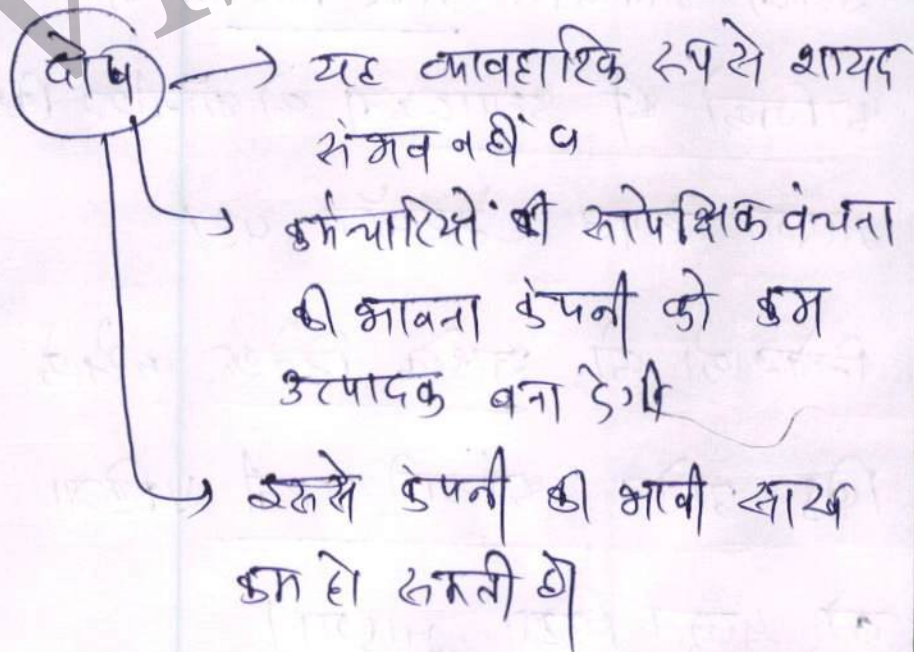 दोष → यह व्यावहारिक रूप से शायद
संभव नहीं
→ कर्मचारियों की सापेक्षिक वंचना
की भावना कंपनी को कम
उत्पादक बना देगी
→ इससे कंपनी की भावी साख
कम हो सकती है।